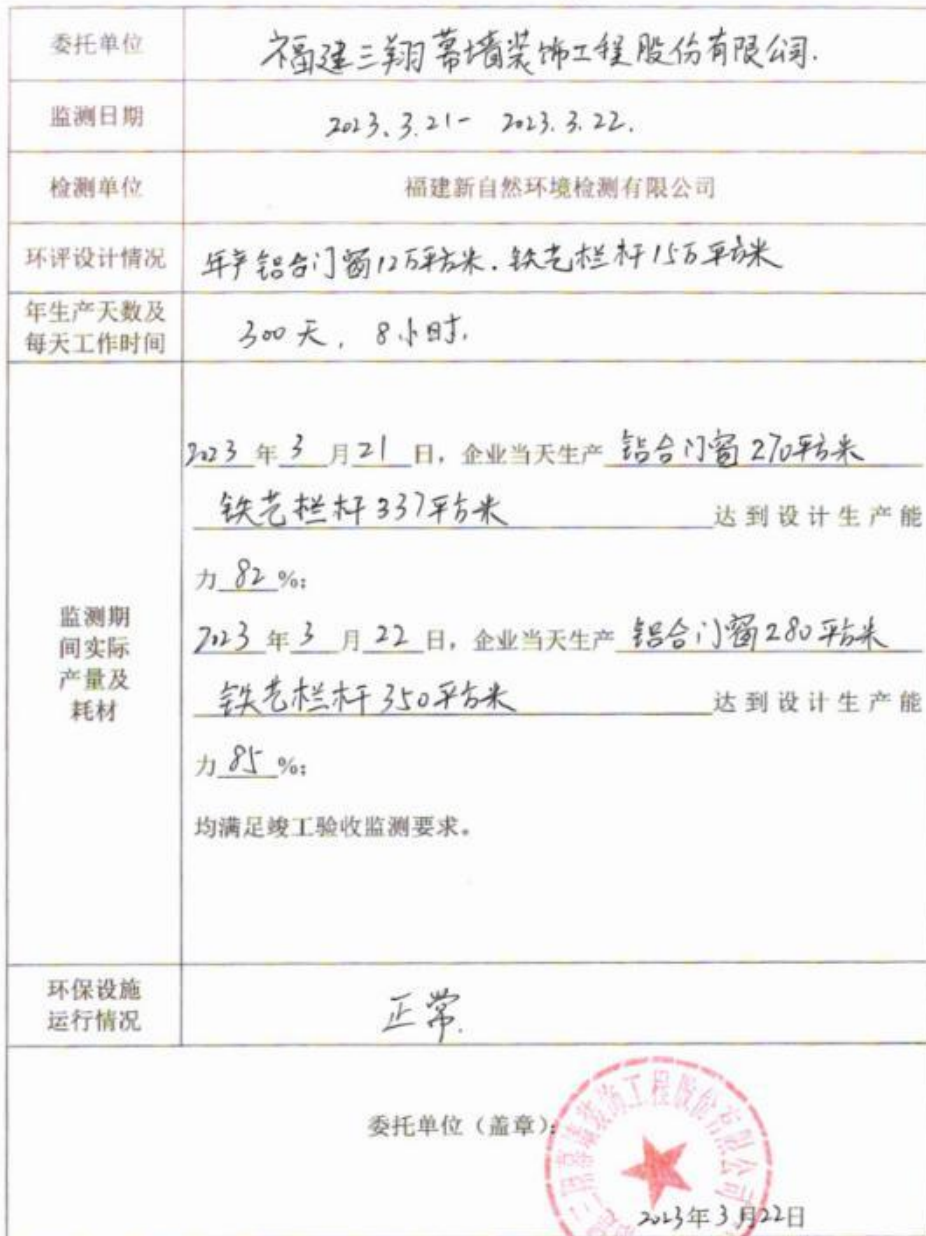 委托单位 福建三翔幕墙装饰工程股份有限公司.
监测日期 2023.3.21- 2023.3.22.
检测单位 福建新自然环境检测有限公司
环评设计情况 年产铝合门窗12万平方米.铁艺栏杆15万平方米
年生产天数及
每天工作时间 300天, 8小时.
监测期
间实际
产量及
耗材
2023 年 3 月 21 日，企业当天生产 铝合门窗270平方米
铁艺栏杆337平方米 达到设计生产能
力 82 %;
2023 年 3 月 22 日，企业当天生产 铝合门窗280平方米
铁艺栏杆350平方米 达到设计生产能
力 85 %;
均满足竣工验收监测要求。
环保设施
运行情况 正常.
委托单位（盖章）:
三翔幕墙装饰工程股份有限公司
2023年3月22日